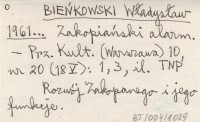 o
BIEŃKOWSKI Władysław
1961... Zakopiański alarm.
- Prz. Kult. (Warszawa) 10,
nr 20 (18 V): 1, 3, il. TNP
Rozwój Zakopanego i jego
funkcje.
BT/004/1089